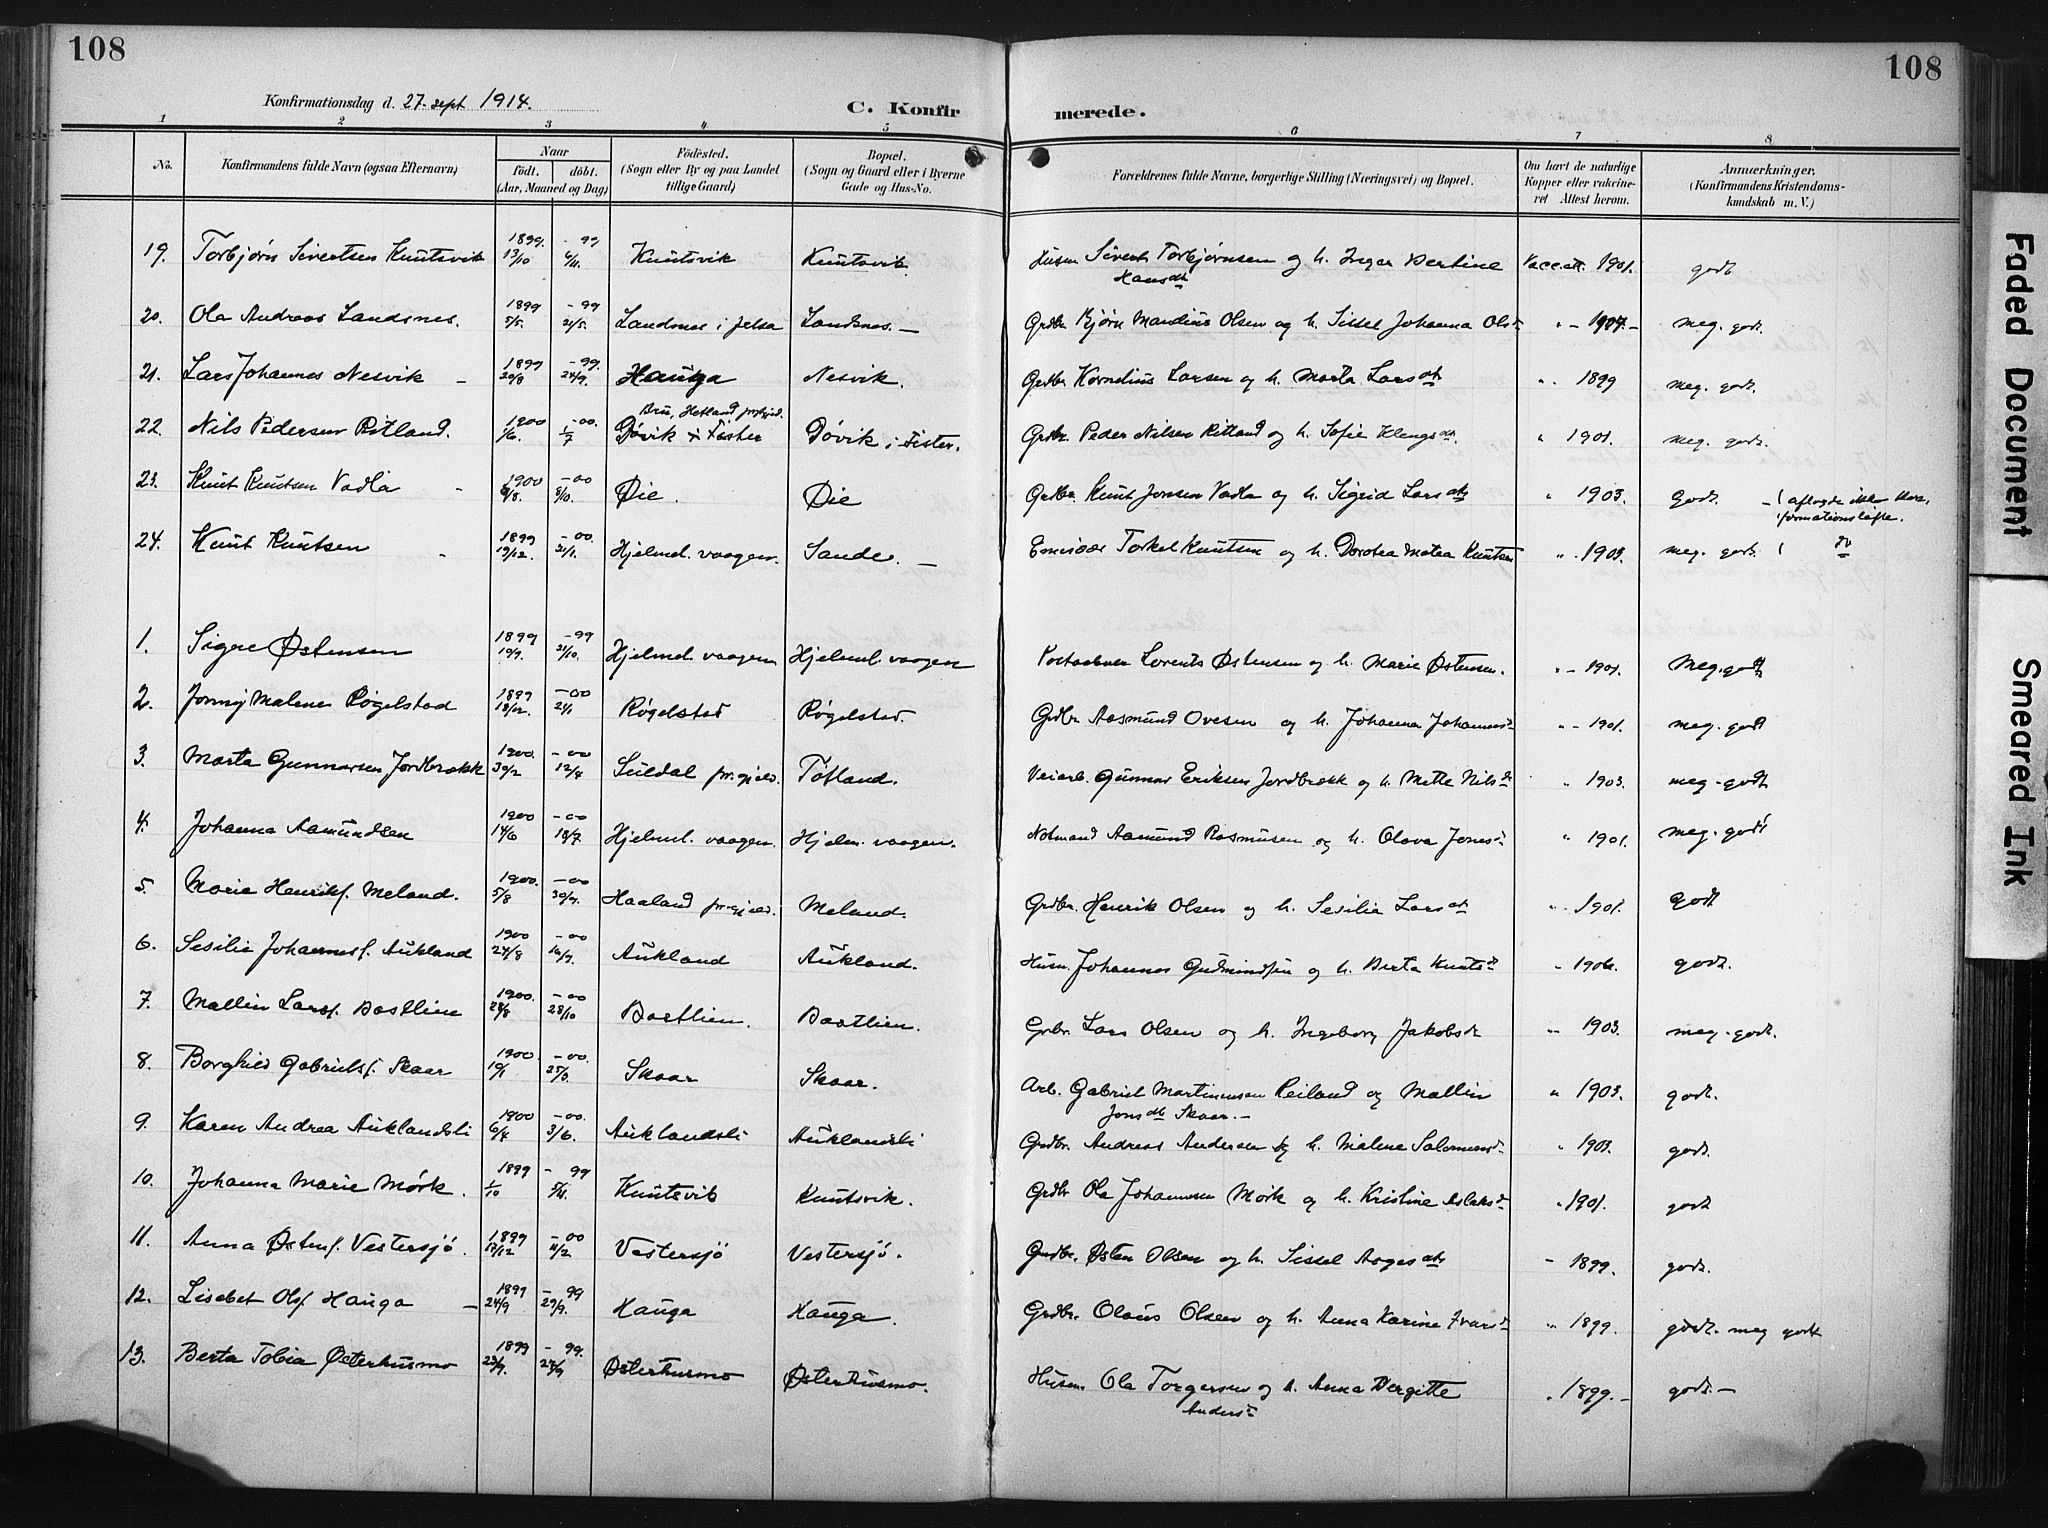 108
108
Konfirmationsdag d. 27. sept. 1914.
C. Konfir
merede.
1 2 3 4 5 6 7 8
No. Konfirmandens fulde Navn (ogsaa Efternavn) Naar födt. döbt. (Aar, Maaned og Dag) Födested. (Sogn eller By og paa Landet tillige Gaard) Bopæl. (Sogn og Gaard eller i Byerne Gade og Hus-No. Forældrenes fulde Navne, borgerlige Stilling (Næringsvei) og Bopæl. Om havt de naturlige Kopper eller vakcineret Attest herom. Anmærkninger. (Konfirmandens Kristendomskundskab m. V.)
19. Torbjørn Sivertsen Knutsvik 1899. 13/10 - 99 4/11. Knutsvik Knutsvik. Husm. Sivert Torbjørnsen og h. Inger Bertine Hansdtr Vacc. att. 1901. godt
20. Ola Andreas Landsnes. 1899 5/5. - 99 21/5. Landsnes i Jelsa Landsnes. - Grdbr Bjørn Mandius Olsen og h. Sissel Johanna Olsd " - 1904. - meg. godt.
21. Lars Johannes Nesvik - 1899 20/8 - 99. 24/9. Hauga Nesvik. Grdbr Kornelius Larsen og h. Marta Larsdtr " 1899 meg. godt.
22. Nils Pedersen Ritland. 1900 1/6. - 00. 1/7 Bru, Hetland prgjeld. Døvik i Fister Døvik i Fister. Grdbr. Peder Nilsen Ritland og h. Sofie Klengsdtr. " 1901. meg. godt.
23. Knut Knutsen Vadla - 1900 9/8. - 00 8/10. Øie. Øie Grdbr. Knut Jonsen Vadla og h. Sigrid Larsdtr " 1903. Godt. - ( aflagde ikke konfirmationsløfte.
24. Knut Knutsen - 1899 19/12. - 00. 21/1. Hjelmel. vaagen. Sande. - Torkel Knutsen og h. Dorotea Matea Knutsen " 1903. meg. godt. ( do
1. Signe Østensen 1899 19/9. - 99 21/10. Hjelmel. vaagen Hjelmel. vaagen Postaabner Lorents Østensen og h. Marie Østensen. " - 1901. Meg. godt
2. Jonny Malene Røgelstad 1899 18/12. - 00 21/1 Røgelstad Røgelstad. Grdbr. Aasmund Ovesen og h. Johanna Johannesd " - 1901. meg. godt
3. Marta Gunnarsen Jordbrekk 1900. 30/2 - 00 12/4 Suldal pr.gjeld. Tøtland. Veiarb. Gunnar Eriksen Jordbrekk og h. Mette Nilsd " 1903. meg. godt
4. Johanna Aamundsen 1900 14/6 - 00 18/7. Hjelmel. vaagen. Hjelm. vaagen. Notmand Aamund Rasmusen og h. Olava Jonesd " 1901. meg. godt
5. Marie Henriks. Meland. 1900. 5/8 - 00 30/9. Haaland pr.gjeld. Meland. Grdbr. Henrik Olsen og h. Sesilie Larsdtr " 1901. godt
6. Sesilie Johannes. Aukland 1900 24/8 - 00 16/9. Aukland Aukland. Husm. Johannes Gudmundsen og h. Berta Knutsd " 1906. godt.
7. Mallin Lars. Bastlien 1900. 28/8 - 00 28/10 Bastlien. Bastlien. Grbr. Lars Olsen og h. Ingeborg Jakobsd " 1903. meg. godt.
8. Borghild Gabriels. Skaar 1900. 19/1 - 00. 25/3. Skaar Skaar. Arb. Gabriel Martinusen Reiland og Mallin Jonsdtr Skaar. - " 1903. godt.
9. Karen Andrea Auklandsli 1900 6/4 - 00. 3/6. Auklandsli Auklandsli Grdbr. Andreas Andersen og h. Malene Salomonsd " 1903. godt.
10. Johanna Marie Mørk. 1899 1/10 - 99 5/11. Knutsvik Knutsvik. Grdbr Ola Johannesen Mørk og h. Kristine Aslaksd " 1901. godt
11. Anna Østens. Vestersjø. 1899 17/12 - 00 11/2 Vestersjø Vestersjø. Grdbr. Østen Olsen og h. Sissel Aagesdtr " 1899. godt.
12. Lisebet Ols. Hauga - 1899 24/9 - 99 29/9. Hauga Hauga. Grdbr. Olaus Olsen og h. Anna Karine Ivarsd " 1899. godt. meg godt
13. Berta Tobia Østerhusmo 1899 23/9. - 99. 24/9 Østerhusmo Østerhusmo. Husm. Ola Torgersen og h. Anna Bergitte Andersd " 1899. - godt. -
Faded Document
Smeared Ink